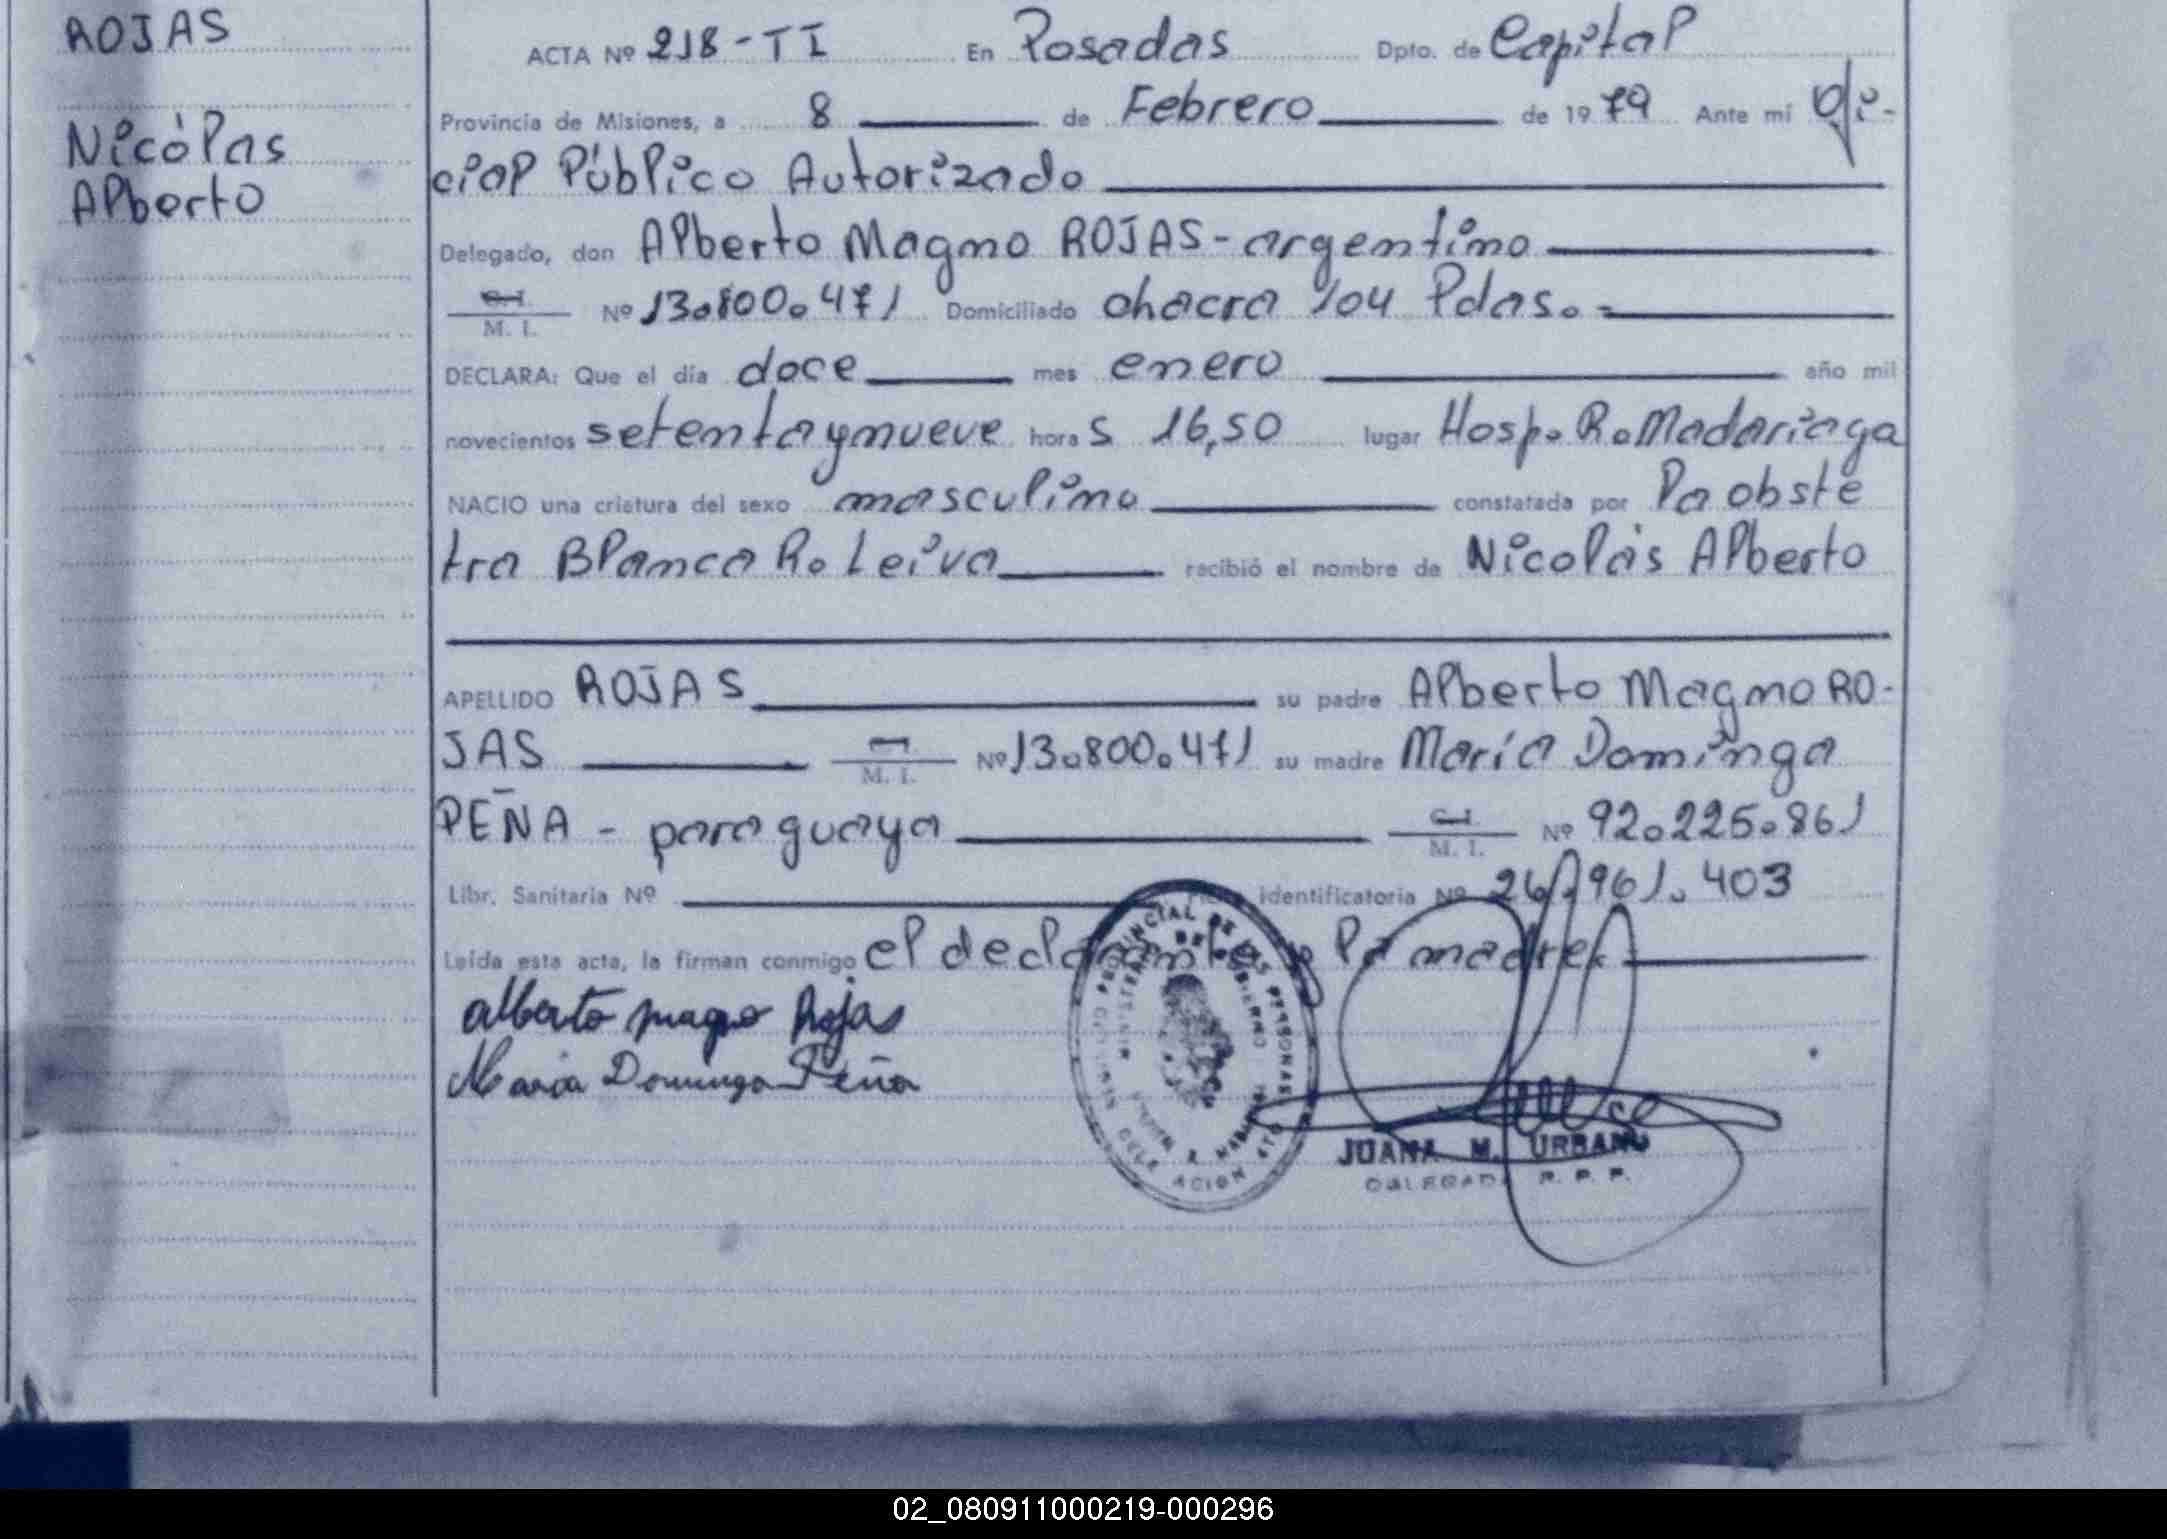 ROJAS
Nicólas
Alberto
ACTA Nº 218-TI En Posadas Dpto. de Capital
Provincia de Misiones, a 8 de Febrero de 1979 Ante mí Ofi-
cial Público Autorizado
Delegado, don Alberto Magno ROJAS - argentino
C. I. M. I. Nº 13.800.471 Domiciliado chacra 104 Pdas.=
DECLARA: Que el día doce mes enero año mil
novecientos setenta y nueve hora s 16,50 lugar Hosp. R. Madariaga
NACIO una criatura del sexo masculino constatada por la obste
tra Blanca R. Leiva recibió el nombre de Nicolás Alberto
APELLIDO ROJAS su padre Alberto Magno RO-
JAS M. I. Nº 13.800.471 su madre María Dominga
PEÑA - paraguaya C. I. M. I. Nº 92.225.861
Libr. Sanitaria Nº identificatoria Nº 26.961.403
Leída esta acta, la firman conmigo el declarante y la madre
alberto magno Rojas
Maria Dominga Peña
PROVINCIAL DE LAS PERSONAS
JUANA M. URBANO
DELEGADA R. P. P.
02_080911000219-000296